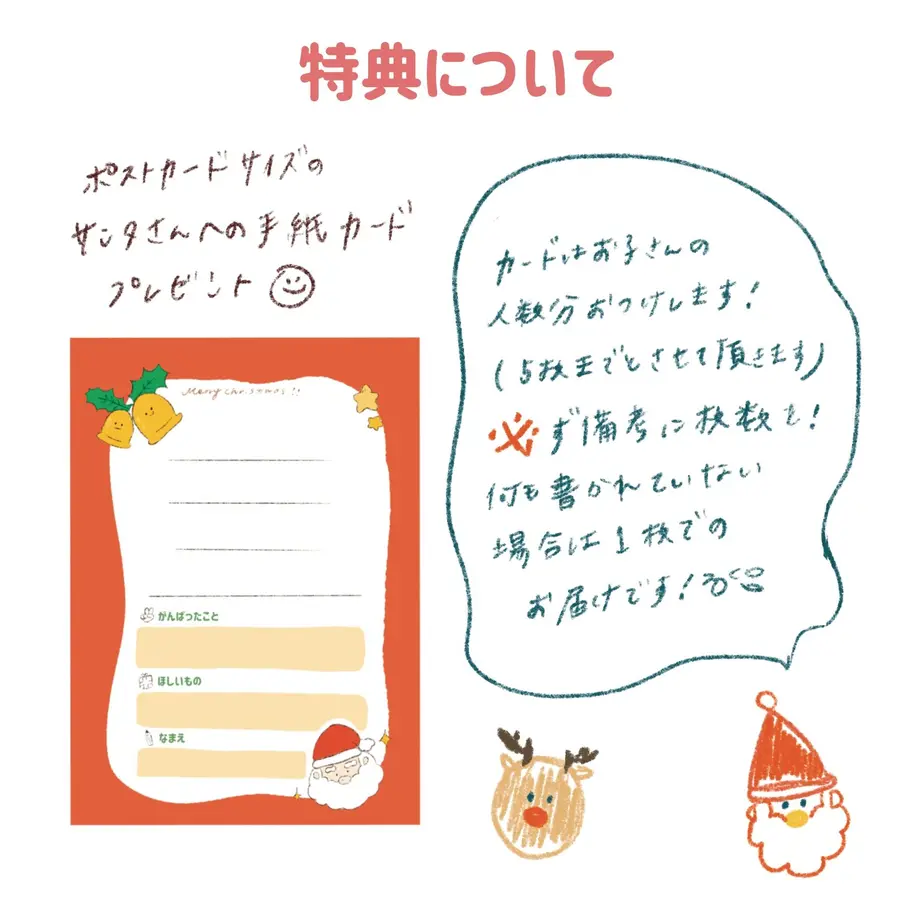 特典について
ポストカードサイズの
サンタさんへの手紙カード
プレゼント
カードはお子さんの
人数分おつけします!
(5枚までとさせて頂きます)
必ず備考に枚数を!
何も書かれていない
場合は1枚での
お届けです!
Merry christmas!!
がんばったこと
ほしいもの
なまえ